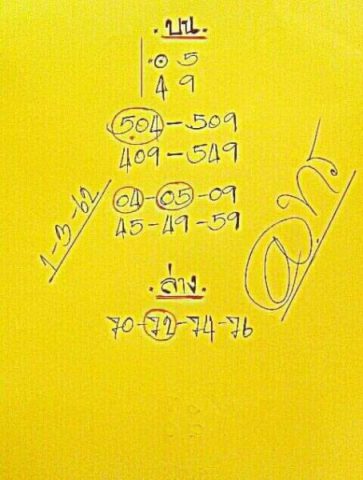 .บน.
0 5
4 9
504-509
409-549
04-05-09
45-49-59
1-3-62
.ล่าง.
70-72-74-76